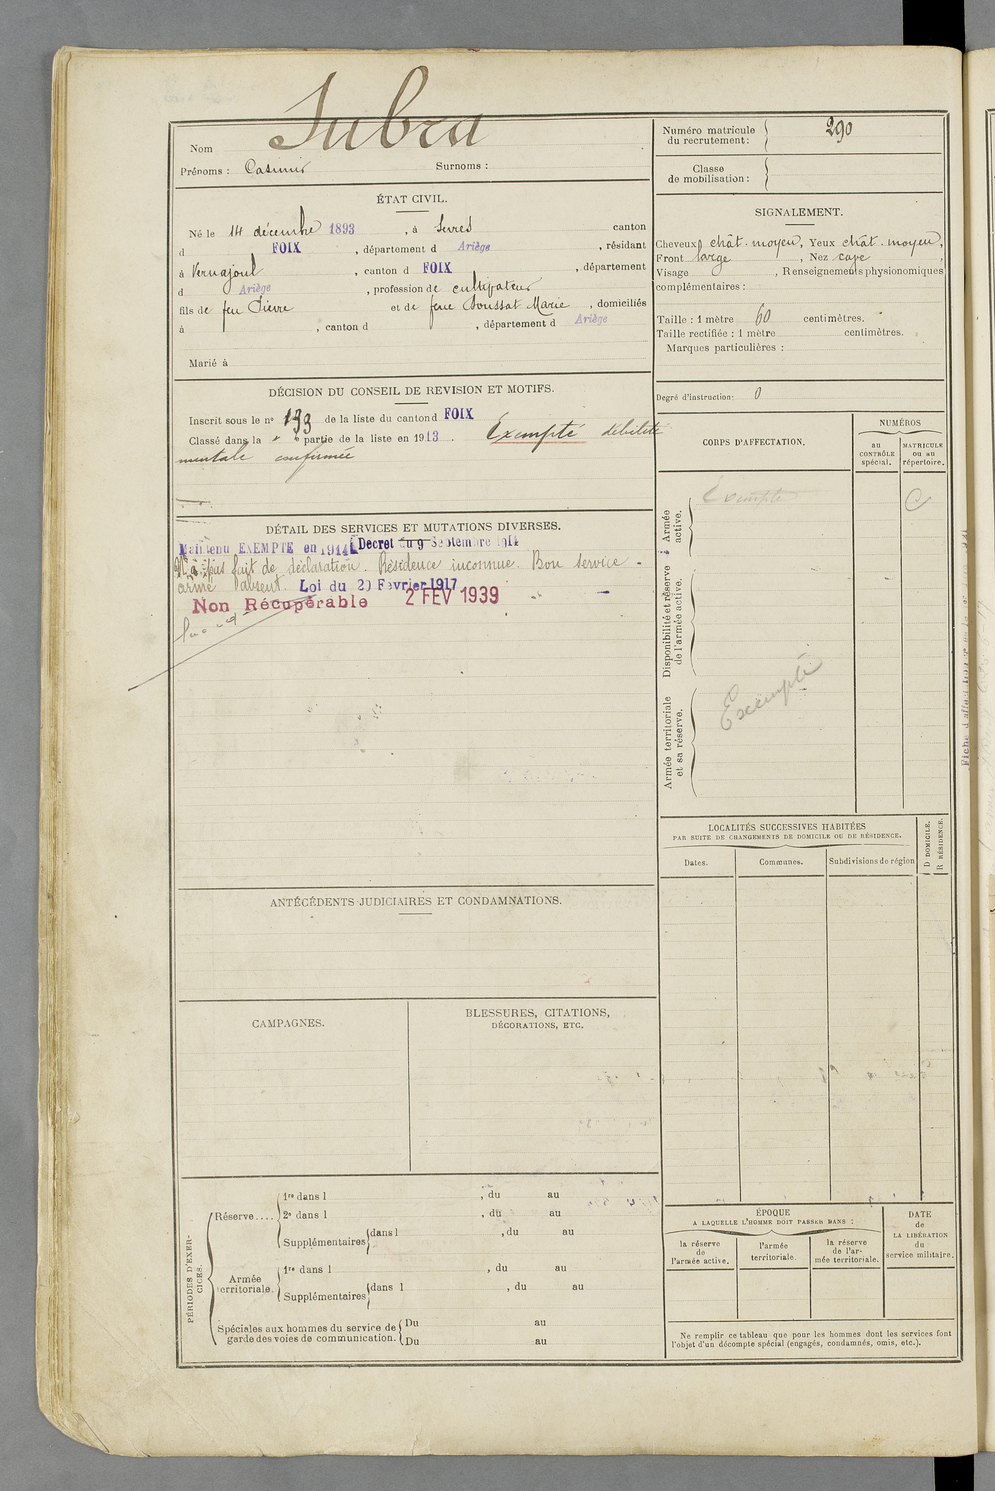 Nom Subra
Prénoms : Casimir Surnoms :
ÉTAT CIVIL.
Né le 14 décembre 1893, à Serres canton
d FOIX, département d Ariège, résidant
à Vernajoul, canton d FOIX, département
d Ariège, profession de cultivateur
fils de feu Pierre et de feue Soussat Marie, domiciliés
à , canton d , département d Ariège
Marié à
DÉCISION DU CONSEIL DE REVISION ET MOTIFS.
Inscrit sous le nº 133 de la liste du canton d FOIX
Classé dans la 6e partie de la liste en 1913. Exempté débilité
mentale confirmée
DÉTAIL DES SERVICES ET MUTATIONS DIVERSES.
Maintenu EXEMPTE en 1914 Decret du 9 Septembre 1914
N'a pas fait de déclaration. Résidence inconnue. Bon service
armé absent. Loi du 20 Février 1917
Non Récupérable 2 FEV 1939
ANTÉCÉDENTS JUDICIAIRES ET CONDAMNATIONS.
CAMPAGNES.
BLESSURES, CITATIONS,
DÉCORATIONS, ETC.
PÉRIODES D'EXER-
CICES.
Réserve....
1re dans l , du au
2e dans l , du au
Supplémentaires dans l , du au
Armée
territoriale.
1re dans l , du au
Supplémentaires dans l , du au
Spéciales aux hommes du service de
garde des voies de communication.
Du au
Du au
Numéro matricule
du recrutement: 290
Classe
de mobilisation :
SIGNALEMENT.
Cheveux chât. moyen, Yeux chât. moyen,
Front large, Nez cave,
Visage , Renseignements physionomiques
complémentaires :
Taille : 1 mètre 60 centimètres.
Taille rectifiée : 1 mètre centimètres.
Marques particulières :
Degré d'instruction: 0
CORPS D'AFFECTATION.
NUMÉROS
au
CONTRÔLE
spécial.
MATRICULE
ou au
répertoire.
Armée
active.
Exempté
Disponibilité et réserve
de l'armée active.
Armée territoriale
et sa réserve.
Exempté
LOCALITÉS SUCCESSIVES HABITÉES
PAR SUITE DE CHANGEMENTS DE DOMICILE OU DE RÉSIDENCE.
Dates.
Communes.
Subdivisions de région
D DOMICILE.
R RÉSIDENCE.
ÉPOQUE
A LAQUELLE L'HOMME DOIT PASSER DANS :
la réserve
de
l'armée active.
l'armée
territoriale.
la réserve
de l'ar-
mée territoriale.
DATE
de
LA LIBÉRATION
du
service militaire.
Ne remplir ce tableau que pour les hommes dont les services font
l'objet d'un décompte spécial (engagés, condamnés, omis, etc.).